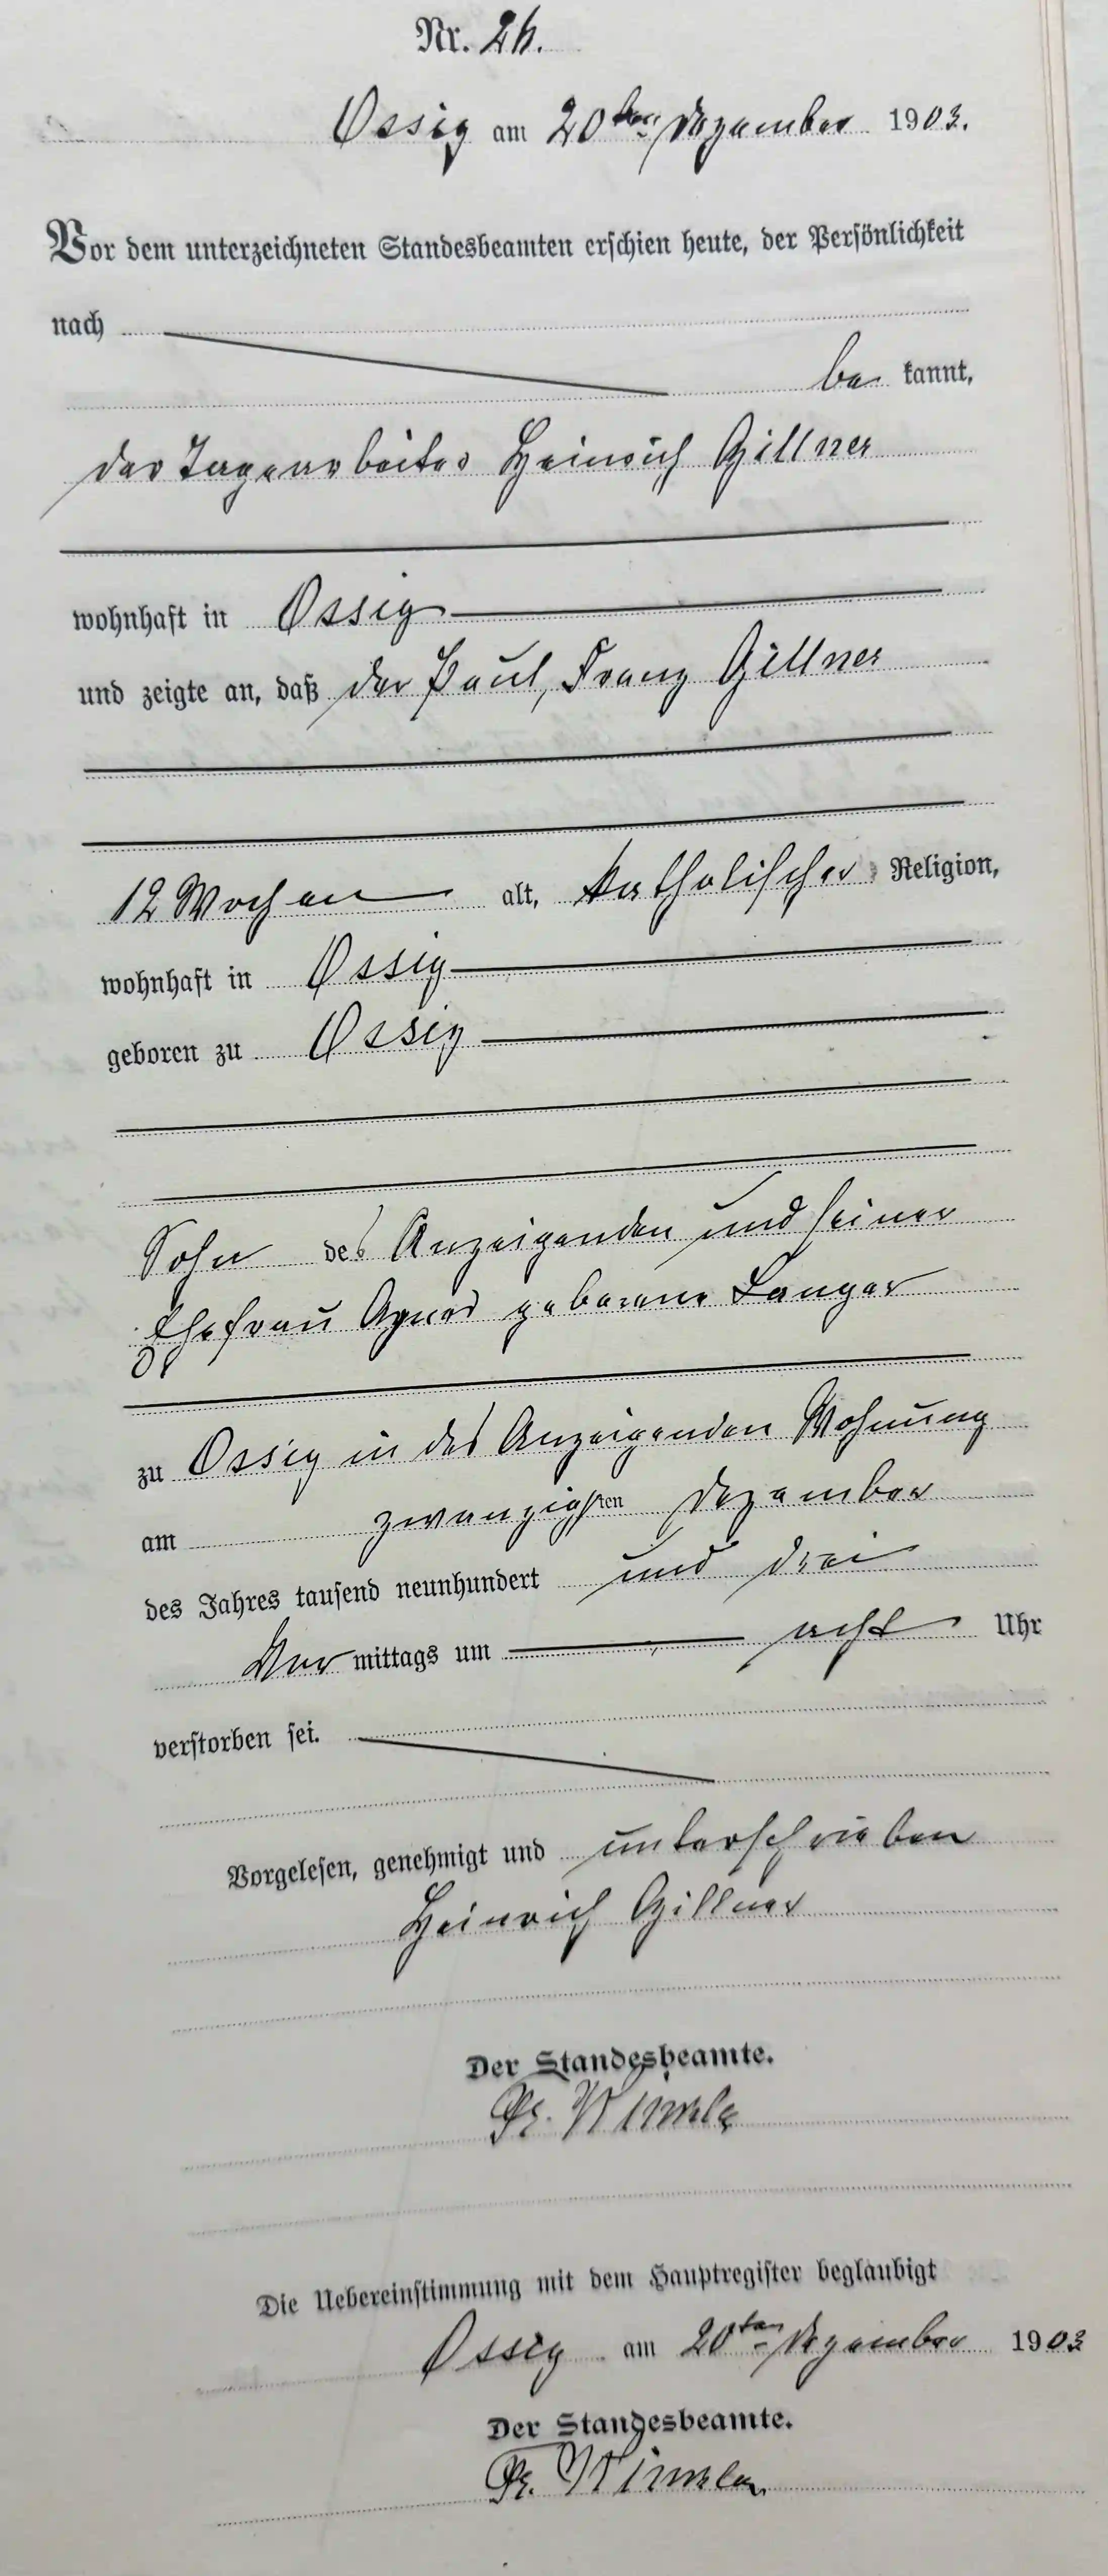 Nr. 26.
Ossig am 20ten Dezember 1903.
Vor dem unterzeichneten Standesbeamten erschien heute, der Persönlichkeit
nach
be kannt,
der Tagearbeiter Heinrich Gillner
wohnhaft in Ossig
und zeigte an, daß der Paul, Franz Gillner
12 Wochen alt, katholischer Religion,
wohnhaft in Ossig
geboren zu Ossig
Sohn des Anzeigenden und seiner
Ehefrau Agnes geborene Langer
zu Ossig in des Anzeigenden Wohnung
am zwanzigsten Dezember
des Jahres tausend neunhundert und drei
Vor mittags um acht Uhr
verstorben sei.
Vorgelesen, genehmigt und unterschrieben
Heinrich Gillner
Der Standesbeamte.
Die Uebereinstimmung mit dem Hauptregister beglaubigt
Ossig am 20ten Dezember 1903
Der Standesbeamte.